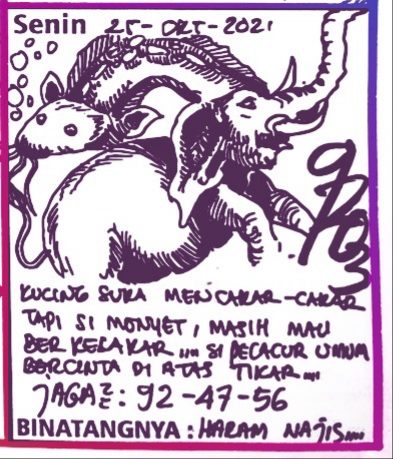 Senin 25-OKT-2021
9203
KUCING SUKA MENCAKAR-CAKAR
TAPI SI MONYET, MASIH MAU
BERKELAKAR .... SI PECACUR UMUM
BERCINTA DI ATAS TIKAR....
JAGA² : 92-47-56
BINATANGNYA : HARAM NAJIS....